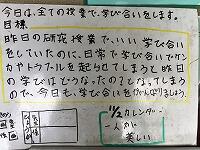 今日は、全ての授業で、学び合いをします。
目標
昨日の研究授業で、いい学び合い
をしていたのに、日常で学び合いでケン
カやトラブルを起こらせてしまうと昨日
の学びはどうなったのってなってしまう
ので、今日も、学び合いをがんばりましょう。
11/2 カレンダー
一人が
美しい